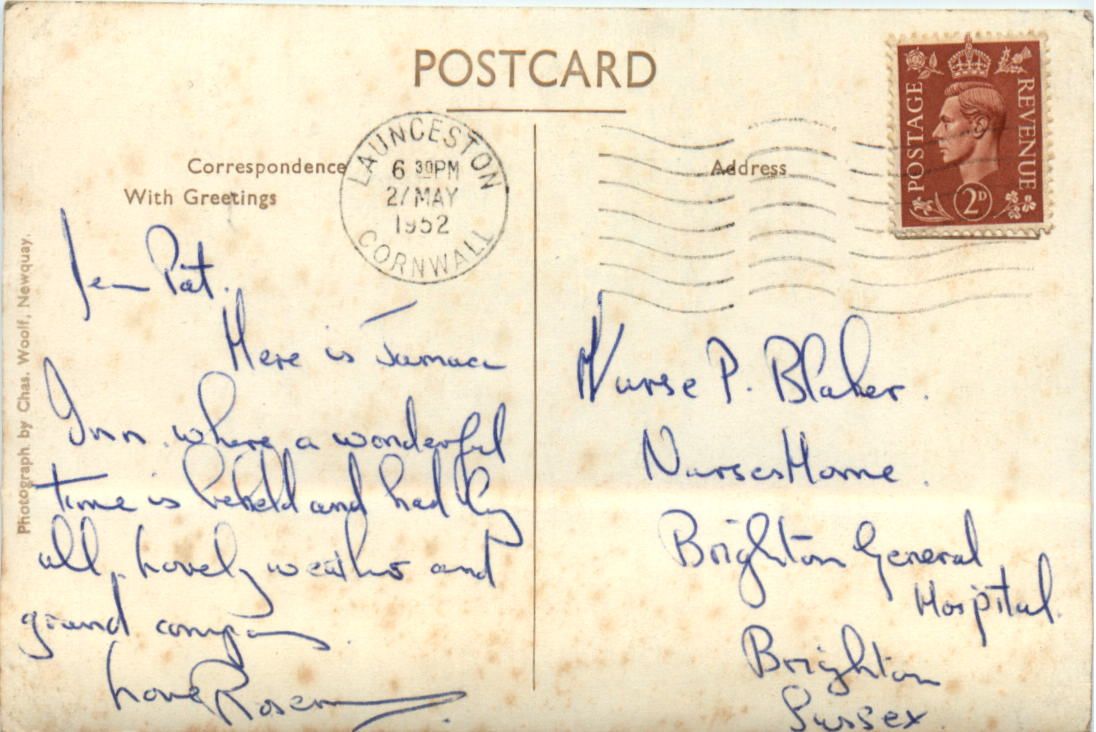 POSTCARD
Correspondence
With Greetings
Address
LAUNCESTON
6 30PM
2/ MAY
1952
CORNWALL
POSTAGE
REVENUE
2D
Photograph by Chas. Woolf, Newquay.
Dear Pat.
Here is Jamaca
Inn. where a wonderful
time is beheld and had by
all, Lovely weather and
grand company.
Love Rosemary.
Nurse P. Blaker.
Nurses Home.
Brighton General
Hospital.
Brighton
Sussex.